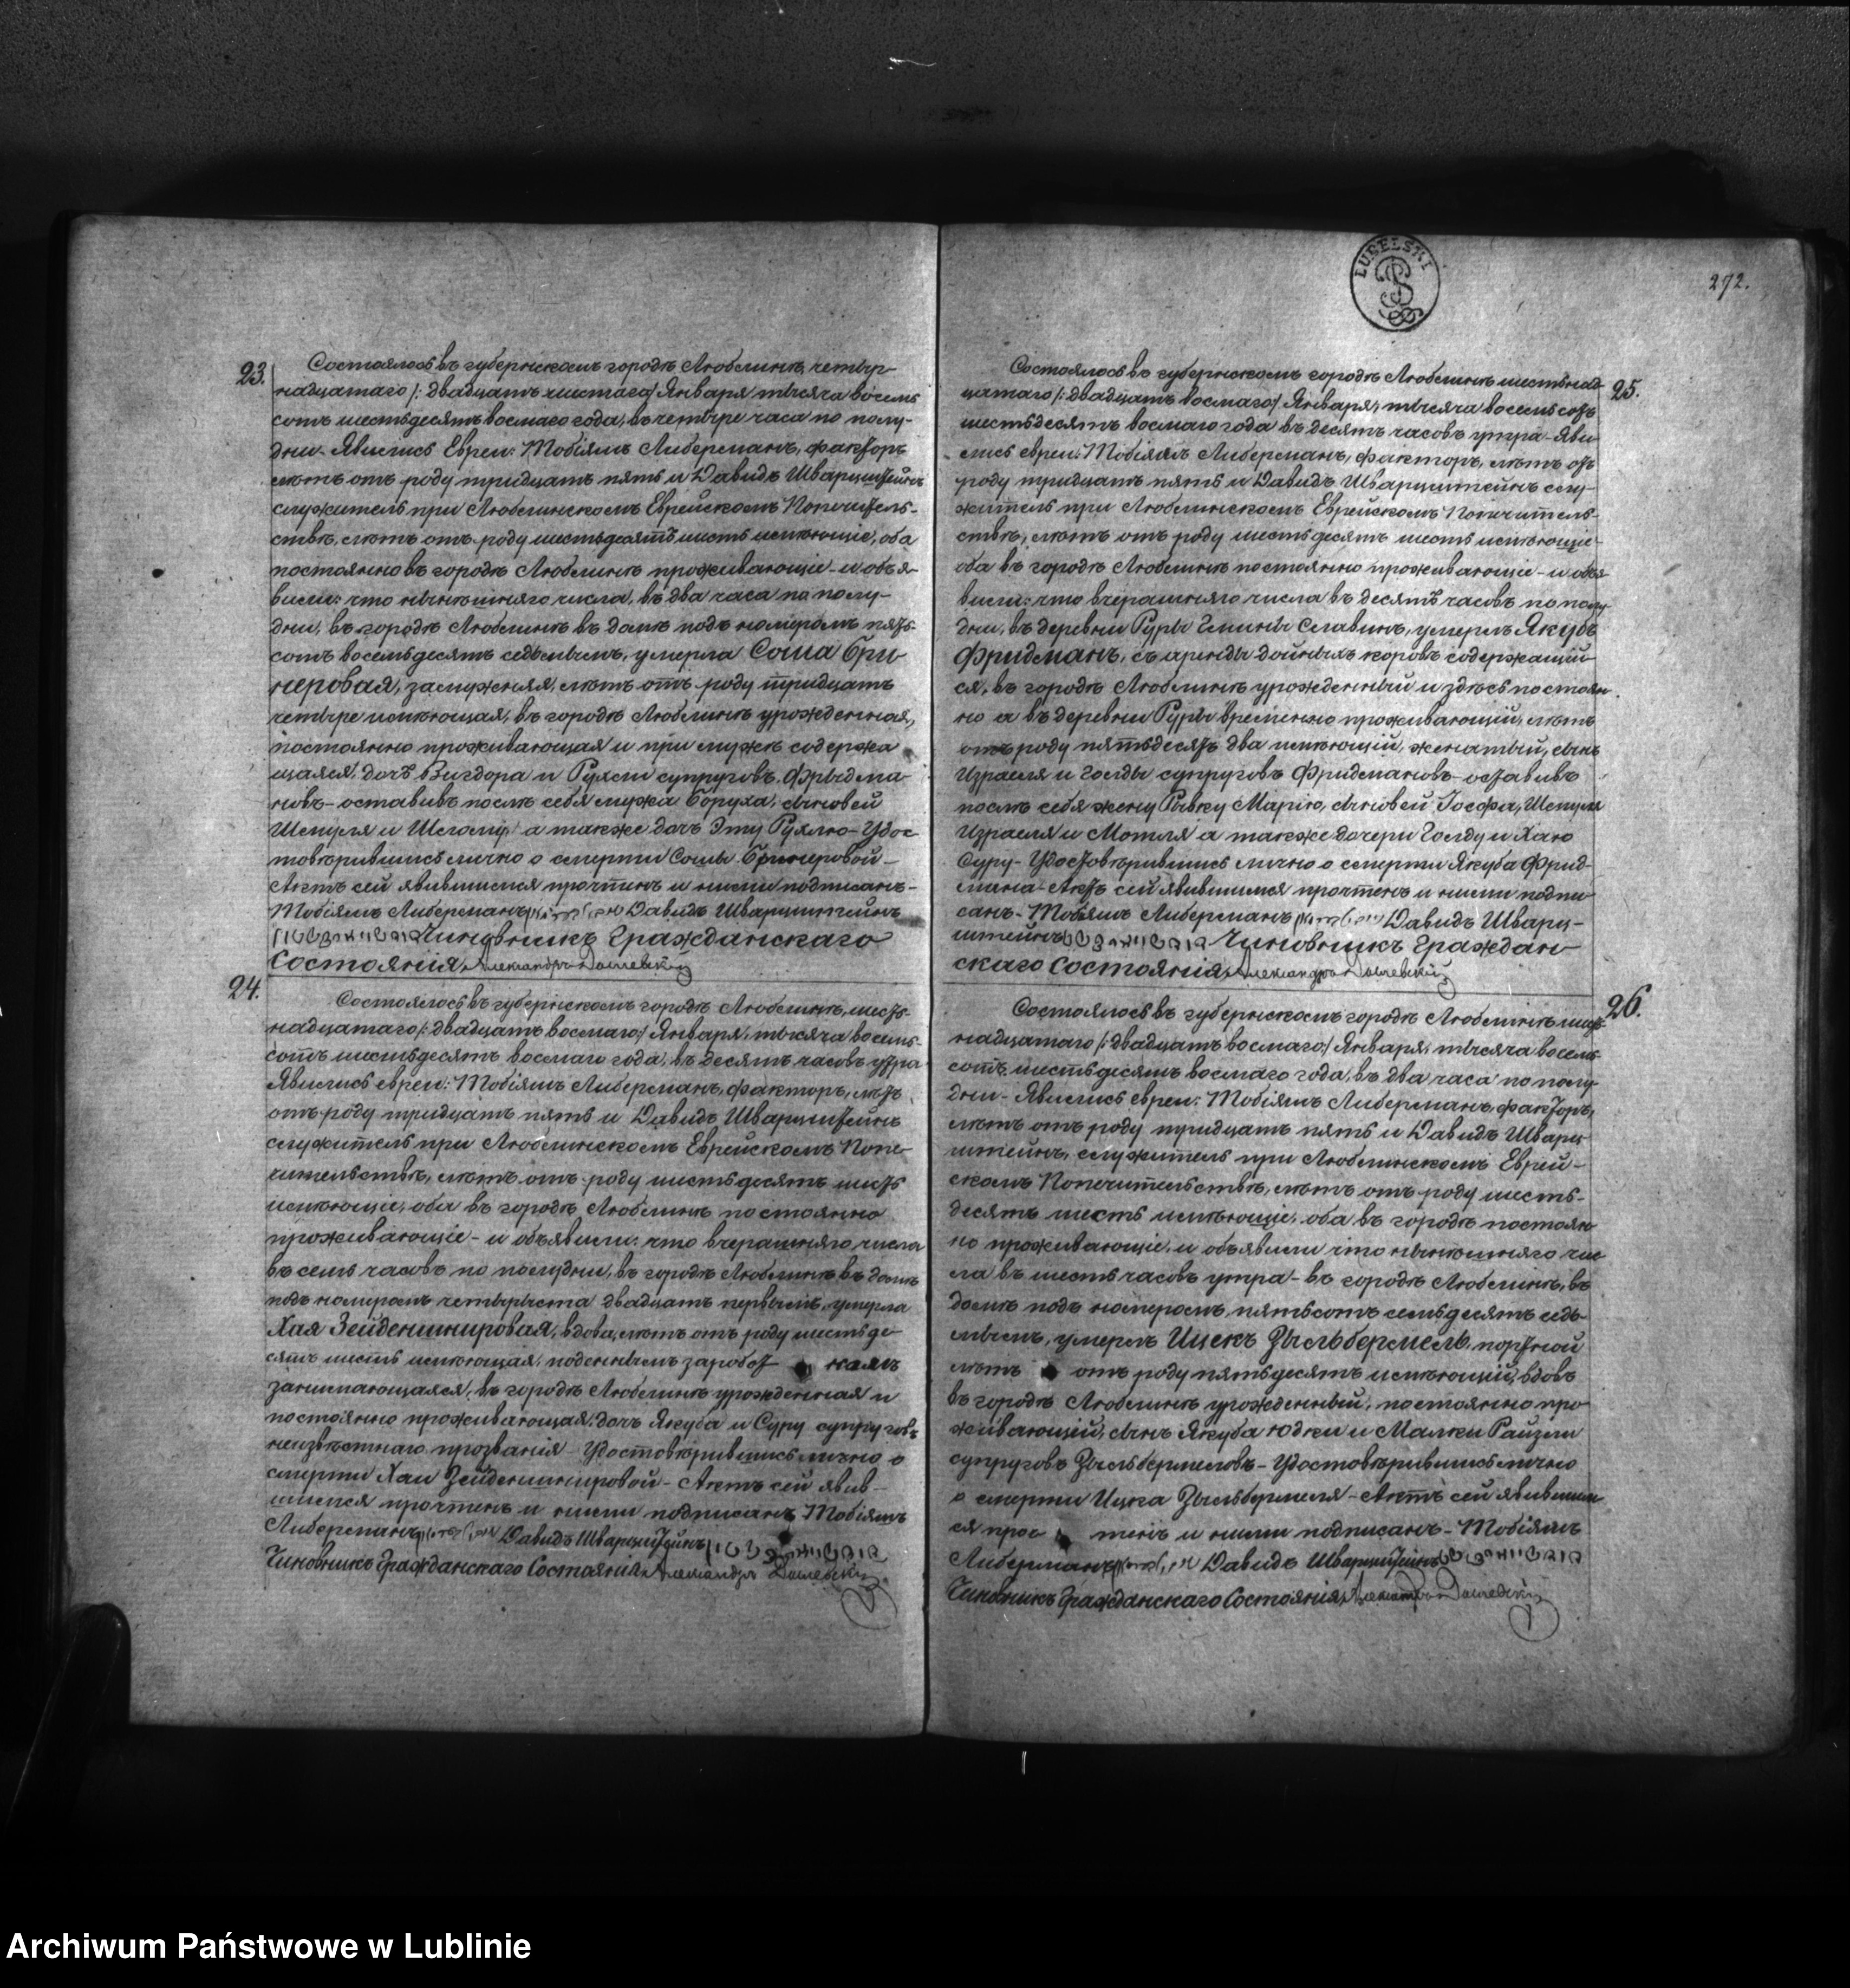 LUBELSKI
272.
23.
Состоялось въ губернскомъ городѣ Люблинѣ, четыр-
надцатаго /: двадцать шестаго :/ Января тысяча восемь
сотъ шестьдесятъ восьмаго года, въ четыре часа по полу-
дни. Явились Евреи: Мобіямъ Либерманъ, факторъ
лѣтъ отъ роду тридцать пять и Давидъ Шварцштейнъ
служитель при Люблинскомъ Еврейскомъ Попечитель-
ствѣ, лѣтъ отъ роду шестьдесятъ шесть имѣющіе, оба
постоянно въ городѣ Люблинѣ проживающіе - и объя-
вили: что нынѣшняго числа, въ два часа по полу-
дни, въ городѣ Люблинѣ въ домѣ подъ номеромъ пять-
сотъ восемьдесятъ седьмымъ, умерла Соша Бри-
неровая, замужняя, лѣтъ отъ роду тридцать
четыре имѣющая, въ городѣ Люблинѣ урожденная,
постоянно проживающая и при мужѣ содержа
щаяся, дочь Вигдора и Рухли супруговъ Фрыдма-
новъ - оставивъ послѣ себя мужа Боруха, сыновей
Шмуля и Шлому, а также дочь Эту Рухлю - Удос-
товѣрившись лично о смерти Соши Бринеровой -
Актъ сей явившимся прочтенъ и ними подписанъ -
Мобіямъ Либерманъ Давидъ Шварцштейнъ
Чиновникъ Гражданскаго
Состоянія, Александръ
24.
Состоялось въ губернскомъ городѣ Люблинѣ, шест-
надцатаго /: двадцать восьмаго :/ Января, тысяча восемь-
сотъ шестьдесятъ восьмаго года, въ десять часовъ утра
Явились евреи: Мобіямъ Либерманъ, факторъ, лѣтъ
отъ роду тридцать пять и Давидъ Шварцштейнъ
служитель при Люблинскомъ Еврейскомъ Попе-
чительствѣ, лѣтъ отъ роду шестьдесятъ шесть
имѣющіе, оба въ городѣ Люблинѣ постоянно
проживающіе - и объявили: что вчерашняго числа
въ семь часовъ по полудни, въ городѣ Люблинѣ въ домѣ
подъ номеромъ четыреста двадцать первымъ, умерла
Хая Зейденшнировая, вдова, лѣтъ отъ роду шестьде-
сятъ шесть имѣющая, поденнымъ заробот камъ
занимающаяся, въ городѣ Люблинѣ урожденная и
постоянно проживающая, дочь Якуба и Суру супруговъ
неизвѣстнаго прозванія - Удостовѣрившись лично о
смерти Хаи Зейденшнировой - Актъ сей явив-
шимся прочтенъ и ними подписанъ Мобіямъ
Либерманъ Давидъ Шварцштейнъ
Чиновникъ Гражданскаго Состоянія, Александръ
25.
Состоялось въ губернскомъ городѣ Люблинѣ шестьнад-
цатаго /: двадцать восьмаго :/ Января, тысяча восемьсотъ
шестьдесятъ восьмаго года въ десять часовъ утра - Яви
лись евреи: Мобіямъ Либерманъ, факторъ, лѣтъ отъ
роду тридцать пять и Давидъ Шварцштейнъ слу-
житель при Люблинскомъ Еврейскомъ Попечитель-
ствѣ, лѣтъ отъ роду шестьдесятъ шесть имѣющіе -
оба въ городѣ Люблинѣ постоянно проживающіе - и объя
вили: что вчерашняго числа въ десять часовъ по полу-
дни, въ деревни Руры Гмины Славинъ, умерлъ Якубъ
Фридманъ, съ аренды дойныхъ коровъ содержащій-
ся, въ городѣ Люблинѣ урожденный и здѣсь постоян-
но а въ деревни Руры временно проживающій, лѣтъ
отъ роду пятьдесятъ два имѣющій, женатый, сынъ
Израеля и Голды супруговъ Фридмановъ - оставивъ
послѣ себя жену Ривку Марію, сыновей Іосфа, Шмуля
Израеля и Мотля а также дочери Голду и Хаю
Суру - Удостовѣрившись лично о смерти Якуба Фрид-
мана - Актъ сей явившимся прочтенъ и ними подпи-
санъ - Мобіямъ Либерманъ Давидъ Шварц-
штейнъ Чиновникъ Граждан-
скаго Состоянія, Александръ
26.
Состоялось въ губернскомъ городѣ Люблинѣ шест-
надцатаго /: двадцать восьмаго :/ Января, тысяча восемь
сотъ шестьдесятъ восьмаго года, въ два часа по полу-
дни - Явились евреи: Мобіямъ Либерманъ, факторъ,
лѣтъ отъ роду тридцать пять и Давидъ Шварц-
штейнъ, служитель при Люблинскомъ Еврей-
скомъ Попечительствѣ, лѣтъ отъ роду шесть-
десятъ шесть имѣющіе, оба въ городѣ постоян-
но проживающіе, и объявили что нынѣшняго чис-
ла въ шесть часовъ утра - въ городѣ Люблинѣ, въ
домѣ подъ номеромъ пятьсотъ семьдесятъ седь-
мымъ, умерлъ Ицекъ Зысльбермель, портной
лѣтъ отъ роду пятьдесятъ имѣющій, вдовъ
въ городѣ Люблинѣ урожденный, постоянно про-
живающій, сынъ Якуба Юдки и Малки Райзли
супруговъ Зысльбермеловъ - Удостовѣрившись лично
о смерти Ицка Зысльбермеля - Актъ сей явившим
ся проч тенъ и ними подписанъ - Мобіямъ
Либерманъ Давидъ Шварцштейнъ
Чиновникъ Гражданскаго Состоянія, Александръ
Archiwum Państwowe w Lublinie